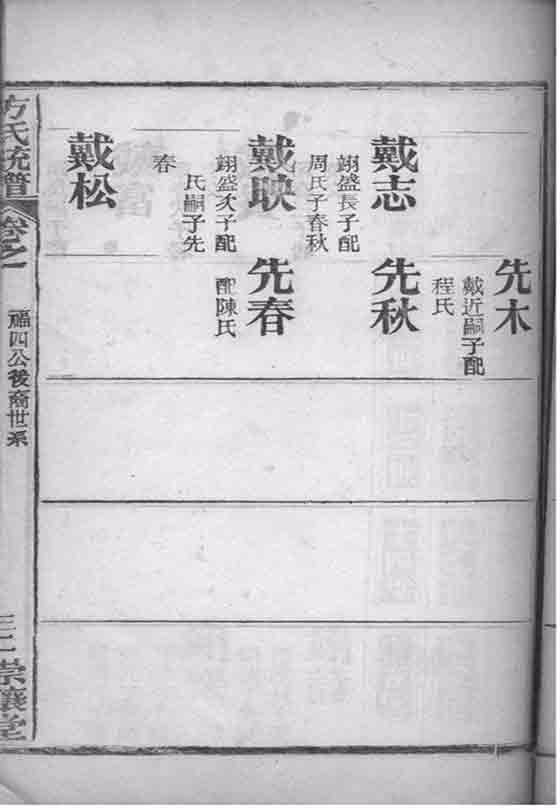 先木
戴近嗣子配
程氏
戴志
翊盛長子配
周氏子春秋
先秋
戴映
翊盛次子配
氏嗣子先
春
先春
配陳氏
戴松
方氏統譜
卷之一
福四公後裔世系
崇讓堂